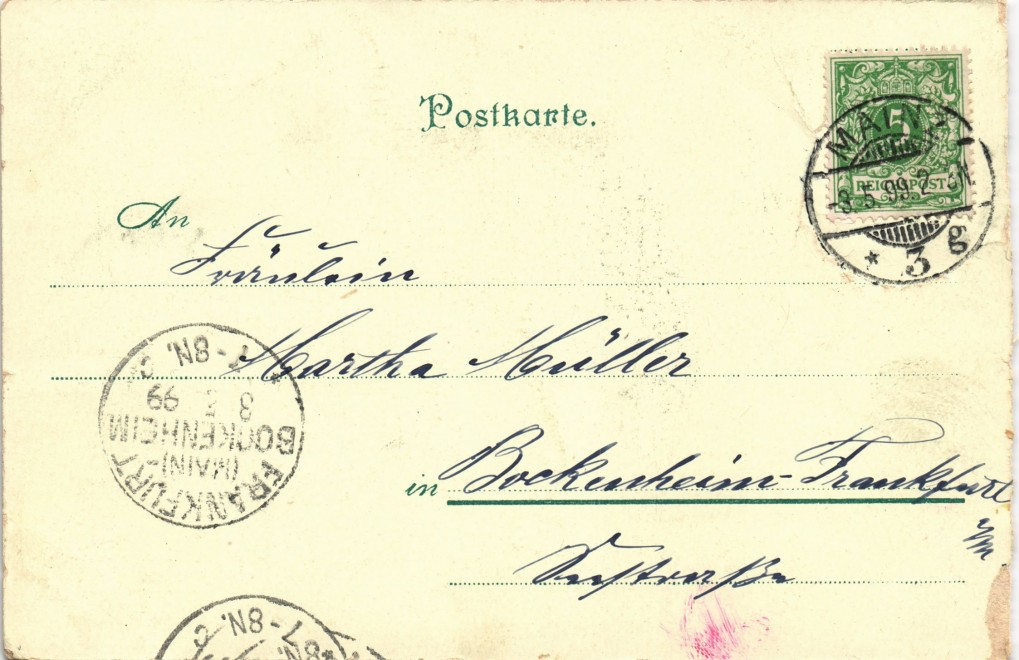 Postkarte.
5
REICHSPOST
MAINZ
8.5.99.2
* 3 g
An
Fräulein
Martha Müller
7-8N.
8 5 99
BOCKENHEIM
(MAIN)-
FRANKFURT
in Bockenheim-Frankfurt
a/M
7-8N. C
8N.